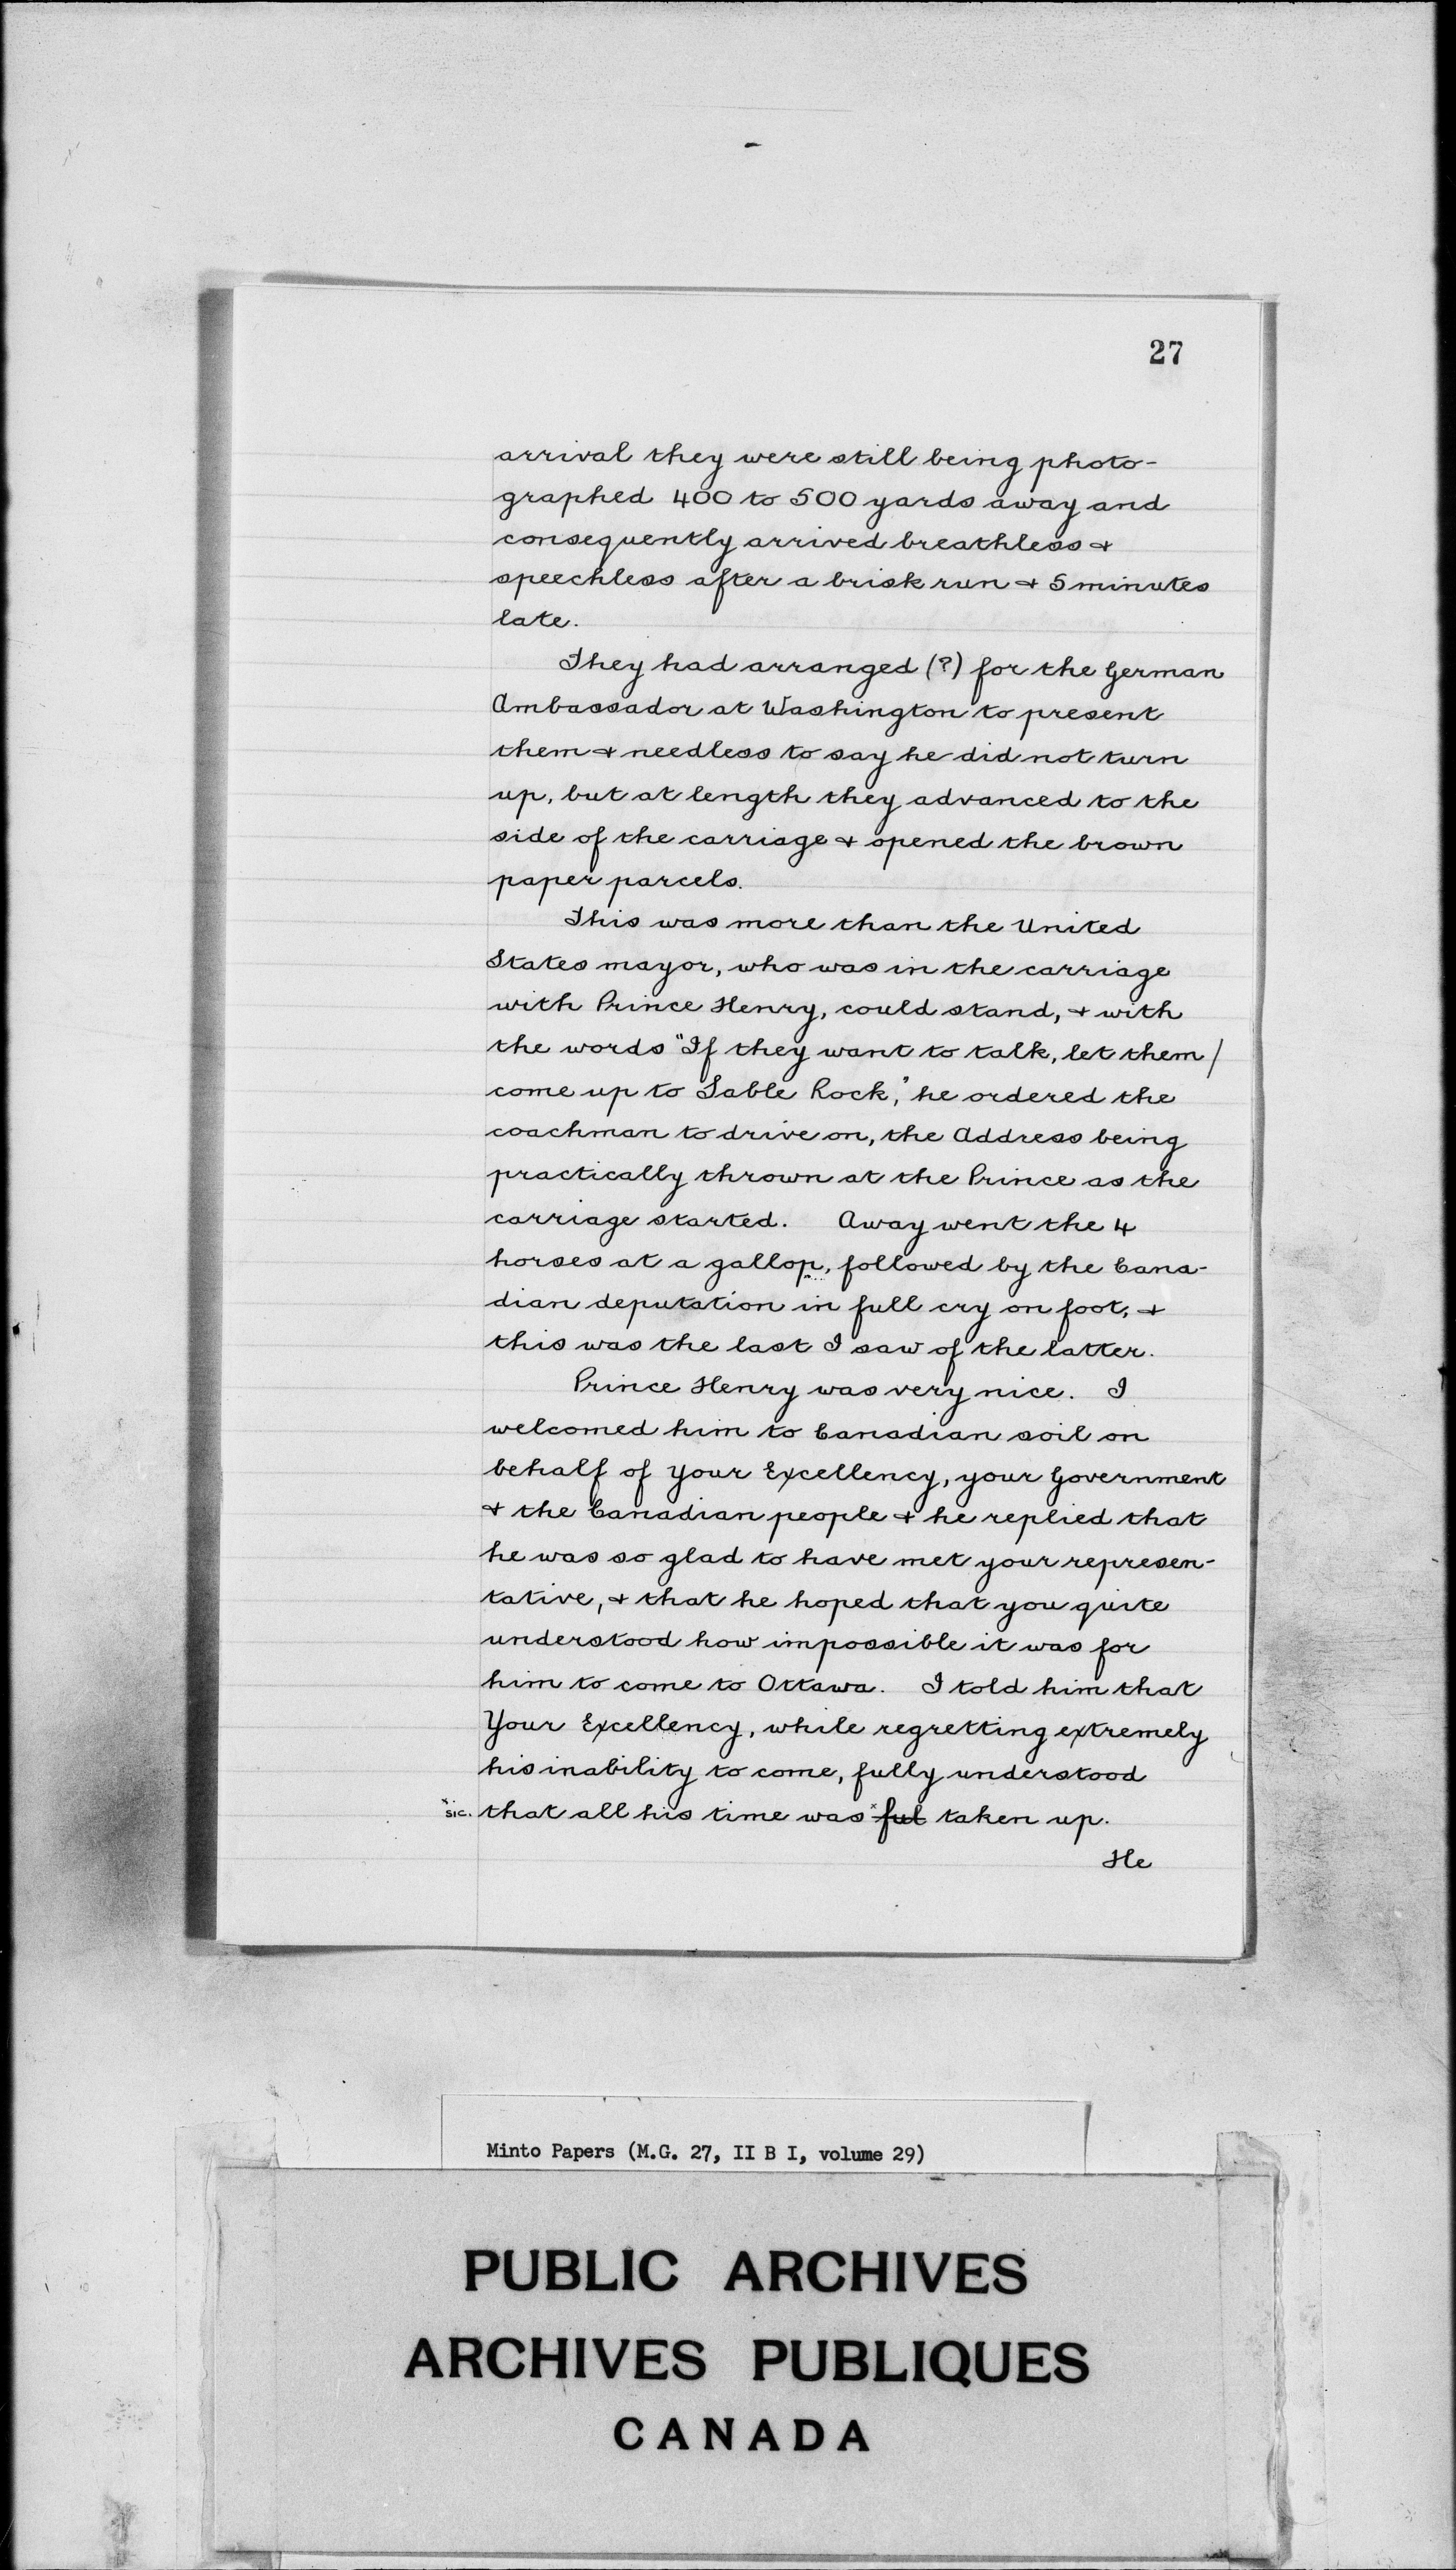 27
arrival they were still being photo-
graphed 400 to 500 yards away and
consequently arrived breathless &
speechless after a brisk run & 5 minutes
late.
They had arranged (?) for the German
Ambassador at Washington to present
them & needless to say he did not turn
up, but at length they advanced to the
side of the carriage & opened the brown
paper parcels.
This was more than the United
States mayor, who was in the carriage
with Prince Henry, could stand, & with
the words "If they want to talk, let them /
come up to Table Rock," he ordered the
coachman to drive on, the Address being
practically thrown at the Prince as the
carriage started. Away went the 4
horses at a gallop, followed by the Cana-
dian deputation in full cry on foot, &
this was the last I saw of the latter.
Prince Henry was very nice. I
welcomed him to Canadian soil on
behalf of Your Excellency, your Government
& the Canadian people & he replied that
he was so glad to have met your represen-
tative, & that he hoped that you quite
understood how impossible it was for
him to come to Ottawa. I told him that
Your Excellency, while regretting extremely
his inability to come, fully understood
x sic. that all his time was x ful taken up.
He
Minto Papers (M.G. 27, II B I, volume 29)
PUBLIC ARCHIVES
ARCHIVES PUBLIQUES
CANADA